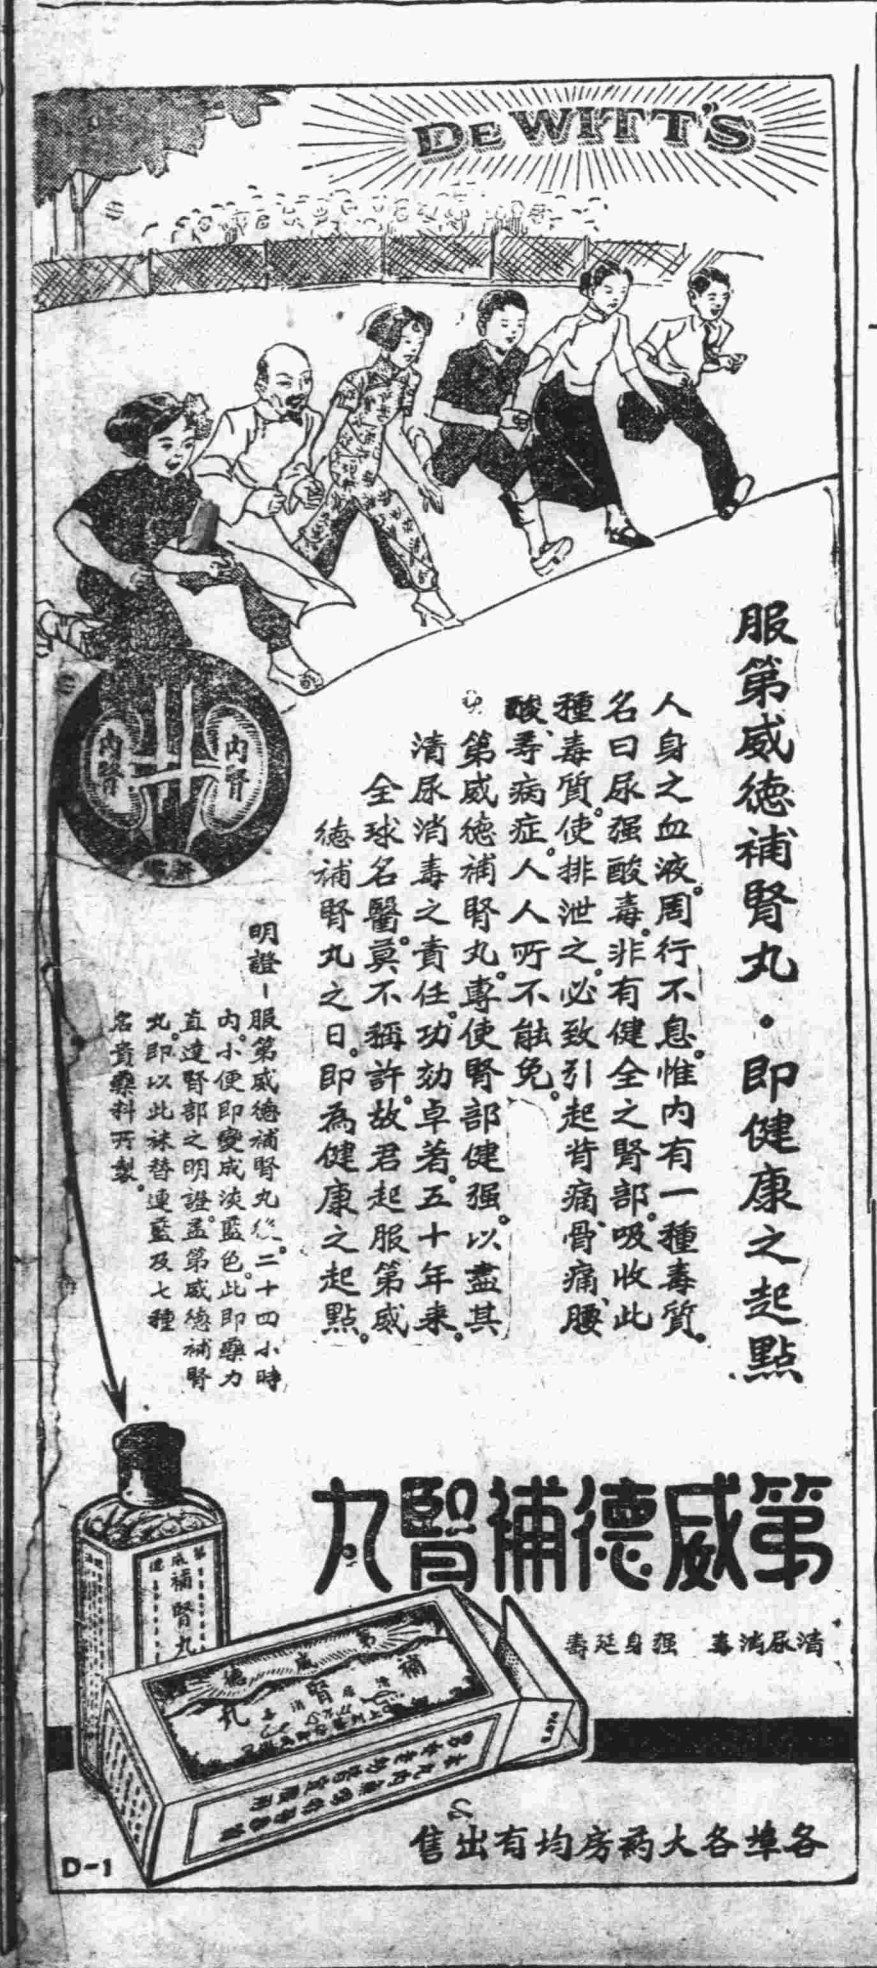 DE WITT'S
服第威德補腎丸・即健康之起點
人身之血液。周行不息。惟內有一種毒質。
名曰尿强酸毒。非有健全之腎部。吸收此
種毒質。使排泄之。必致引起背痛、骨痛、腰
酸、等病症。人人所不能免。
第威德補腎丸。專使腎部健强。以盡其
清尿消毒之責任。功効卓著。五十年來。
全球名醫。莫不稱許。故君起服第威
德補腎丸之日。即為健康之起點。
內腎
內腎
明證-服第威德補腎丸後。二十四小時
內。小便即變成淡藍色。此即藥力
直達腎部之明證。蓋第威德補腎
丸。即以此袜替連藍及七種
名貴藥料所製。
第威德補腎丸
清尿消毒 强身延壽
第威德
補腎丸
補腎丸
各埠各大葯房均有出售
D-1